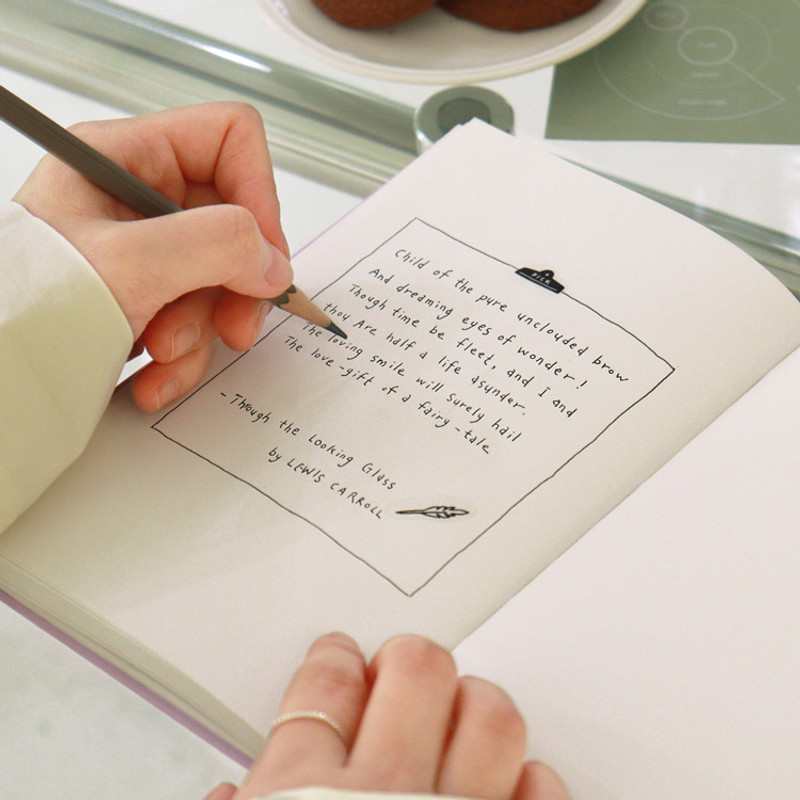 Child of the pure unclouded brow
And dreaming eyes of wonder!
Though time be fleet, and I and
thou Are half a life asunder.
The loving smile will surely hail
The love-gift of a fairy-tale
- Through the Looking Glass
by LEWIS CARROLL